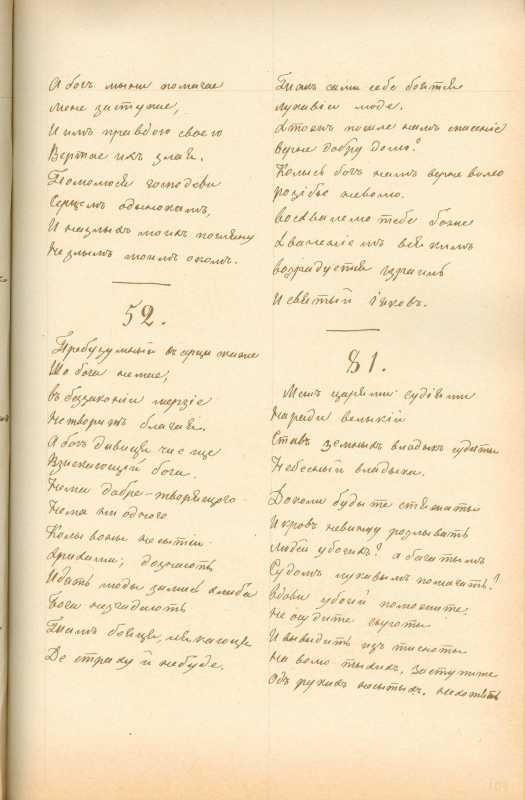 А богъ мыни помагае
Мене заступае,
И имъ правдою своею
Вертае ихъ злая.
Помолюся господеви
Серцемъ одынокимъ,
И на злыхъ моихъ погляну
Не злымъ моимъ окомъ.
52.
Пребузумный въ серци скаже
Що бога немае,
въ беззаконіи мерзіе
Нетворитъ благая.
А богъ дивиця, чи є ще
Взискающій бога.
Нема добро-творящого
Нема ни одного
Колы воны неситіи
грихами, дознаютъ
Идять люды замисть хлиба
Бога незгадаютъ
Тамъ бояцця, лякаюцця
Де страху й небуде.
Такъ сами себе боятся
лукавіи люде.
Хтожъ пошле намъ спасеніе
верне добру долю?
Колысь богъ намъ верне волю
розибье неволю.
восхвалемо тебе боже
Хваленіемъ всякимъ
возрадуется Израиль
И святый Іяковъ.
81.
Межъ царями судіями
На ради велыкій
Ставъ земныхъ владыкъ судити
Небесный владыка.
Доколи будыте стяжать
И кровъ невинну розлывать
людей убогихъ? а багатымъ
Судомъ лукавымъ помагать?
Вдови убогій поможите
Не осудите сыроты
И выведить изъ тисноты
На волю тыхихъ, заступите
Одъ рукъ неситыхъ. нехотять